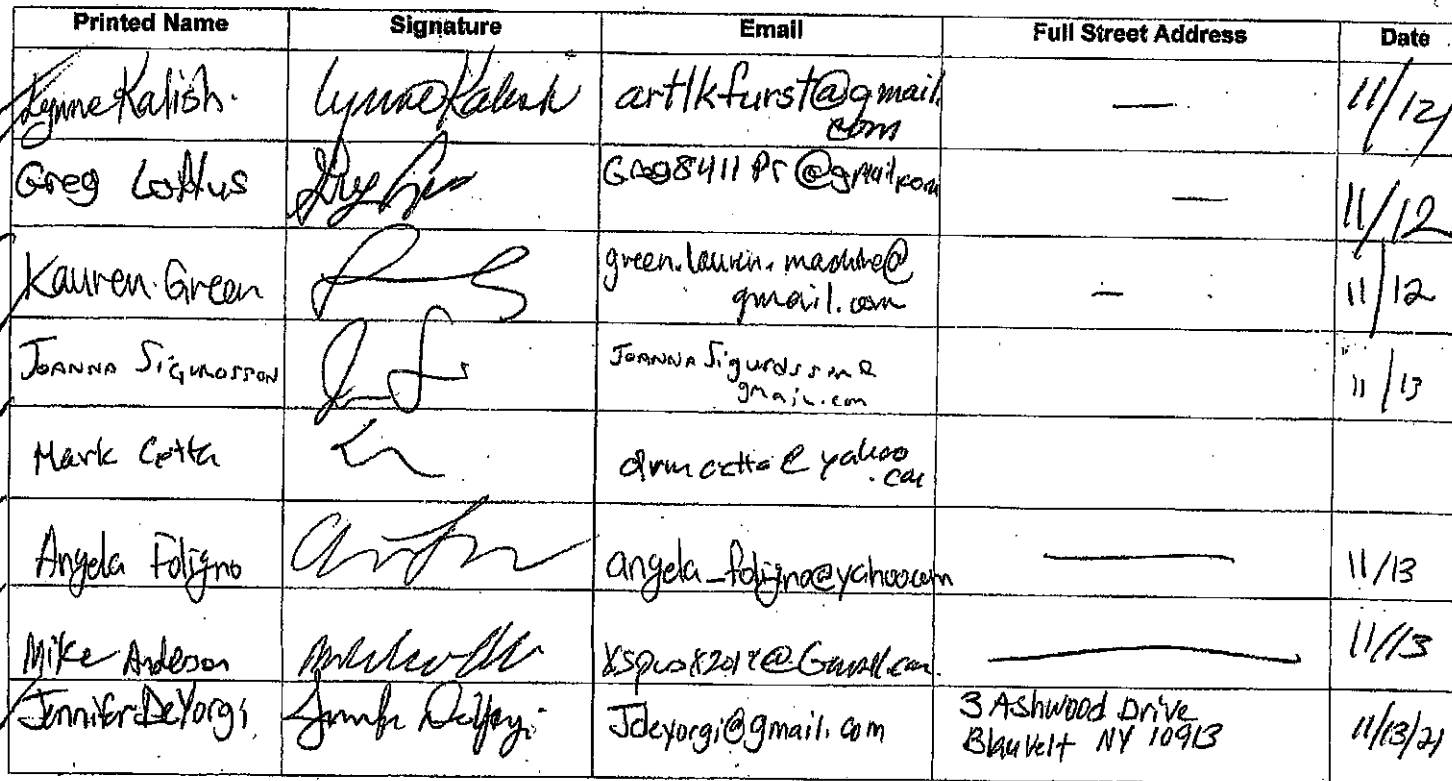 Printed Name Signature Email Full Street Address Date
Lynne Kalish Lynne Kalish artlkfurst@gmail. — 11/12
com
Greg Loftus Greg8411Pr@gmail.com — 11/12
Lauren Green green.lauren.machine@ — 11/12
gmail.com
Joanna Sigurdsson JoannaSigurdsson@ 11/13
gmail.com
Mark Cetta drmcetta@yahoo
.com
Angela Foligno angela_foligno@yahoo.com — 11/13
Mike Anderson — 11/13
Jennifer DeYorgi Jdeyorgi@gmail.com 3 Ashwood Drive 11/13/21
Blauvelt NY 10913